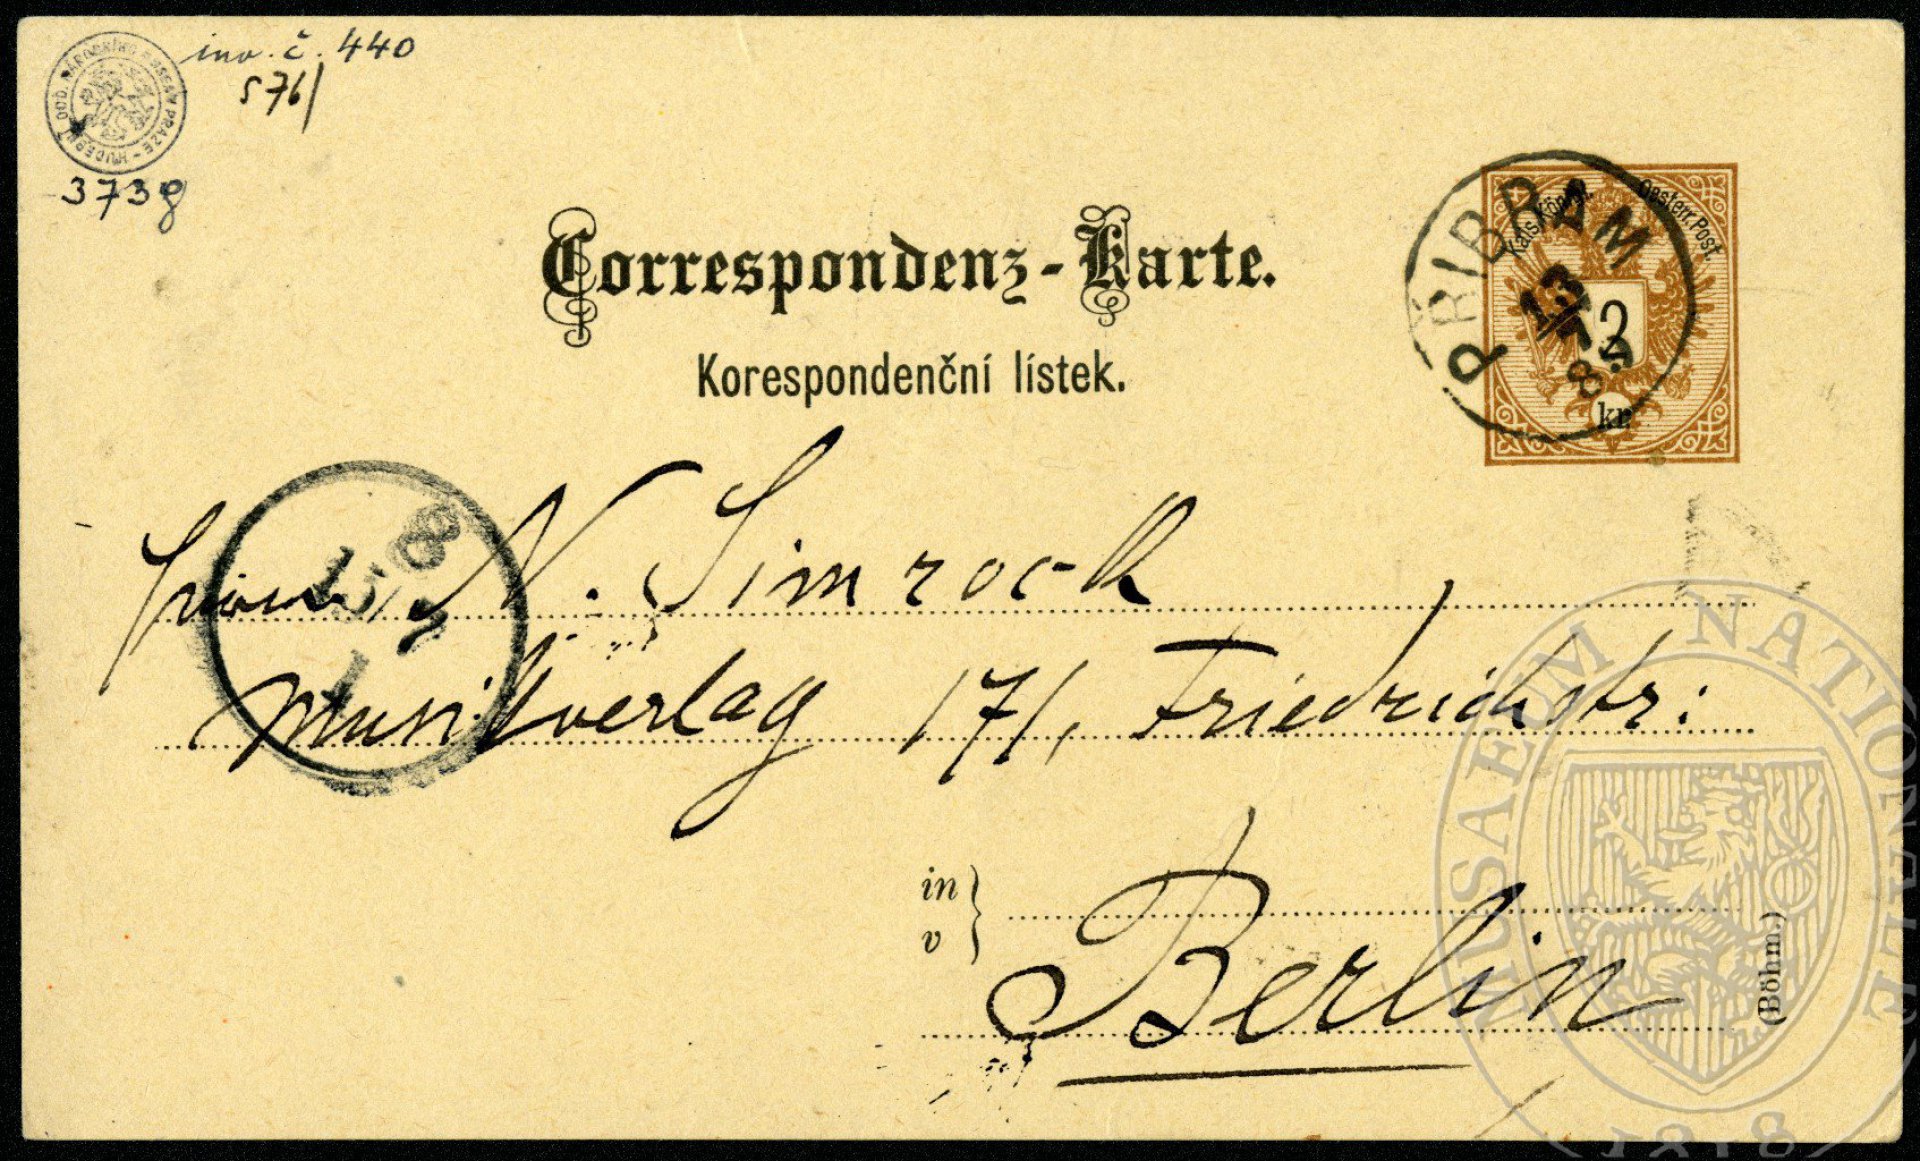 inv. č. 440
s 76/
HUDEBNÍ ODD. NÁRODNÍHO MUSEA V PRAZE
3738
Correspondenz-Karte.
Korespondenční lístek.
PŘIBRAM
13
7
8
Kais. Königl. Oesterr. Post
3
kr.
N. Simrock
Musikverlag 171, Friedrichstr:
in
v
Berlin
(Böhm.)
MUSAEUM NATIONALE
1818